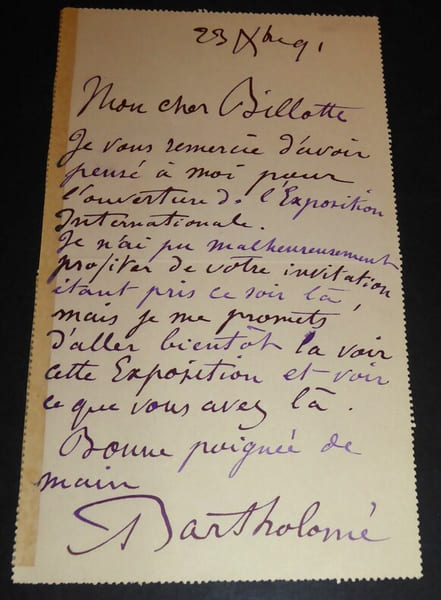 23 Xbre 91
Mon cher Billotte
Je vous remercie d'avoir
pensé à moi pour
l'ouverture de l'Exposition
Internationale.
Je n'ai pu malheureusement
profiter de votre invitation
étant pris ce soir là,
mais je me promets
d'aller bientôt la voir
cette Exposition et voir
ce que vous avez là.
Bonne poignée de
main
Bartholomé